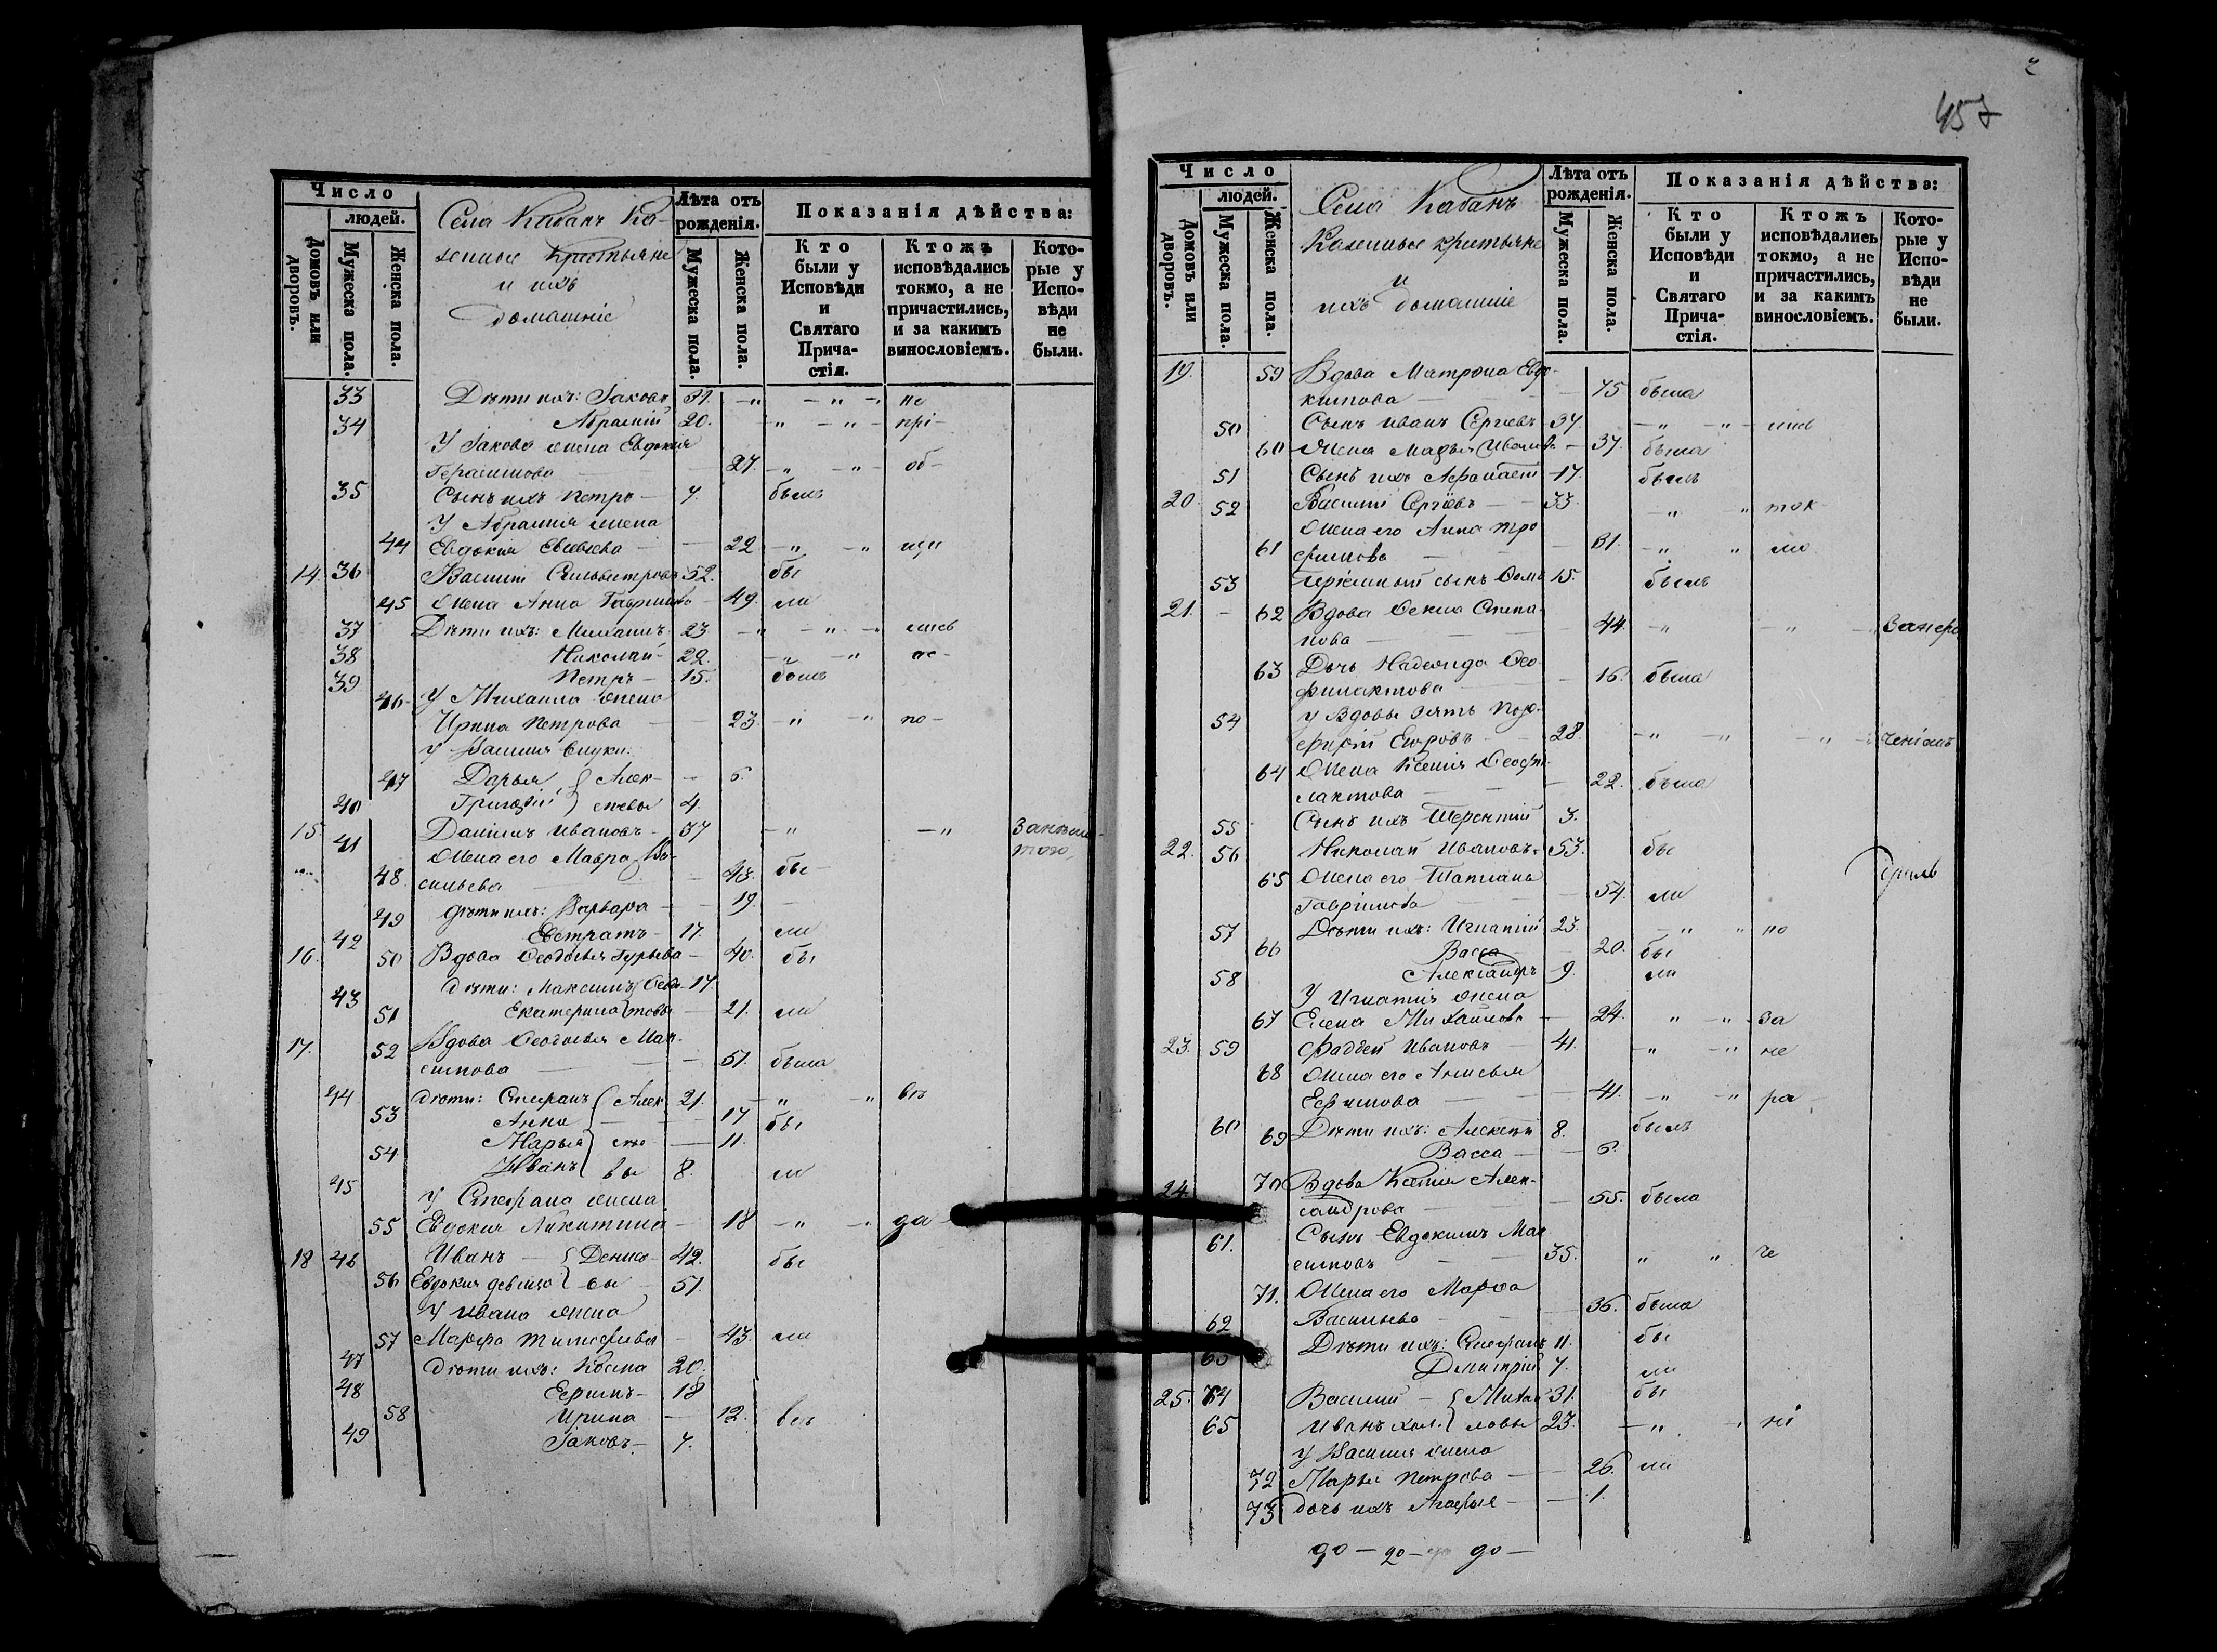 Число
людей.
Домовъ или дворовъ.
Мужеска пола.
Женска пола.
Села Кабанъ Ка-
зенные Крестьяне
и ихъ
домашніе
Лѣта отъ рожденія.
Мужеска пола.
Женска пола.
Показанія дѣйства:
Кто были у Исповѣди и Святаго Прича-стія.
Ктожъ исповѣдались токмо, а не причастились, и за какимъ винословіемъ.
Кото-рые у Испо-вѣди не были.
33 Дѣти ихъ: Іаковъ 31. -"- -"- не
34 Абрамій 20. -"- -"- прі-
У Іакова жена Евдокія
Герасимова — 27. -"- -"- об-
35 Сынъ ихъ Петръ — 7. былъ
У Абрамія жена
44 Евдокія Евсѣева — 22 -"- -"-
14. 36 Василій Сильвестровъ 52. бы
45 Жена Анна Гаврилова — 49. ли
37 Дѣти ихъ: Михаилъ 23 -"- -"- лись
38 Николай — 22. -"- -"-
39 Петръ — 15. былъ
46 У Михаила жена
Ирина Петрова — 23. -"- -"- по-
У Василія внуки:
47 Дарья } Алек- — 6.
40 Григорій } сѣевы 4.
15. 41 Даніилъ Ивановъ — 37 -"- -"-
Жена его Мавра Ва-
48 сильева — 43. бы-
49 Дѣти ихъ: Варвара — 19. —
42 Евстратъ — 17. ли
16. 50 Вдова Ѳеодосья Гурьева — 40. бы
43 Дѣти: Максимъ 17.
51 Екатерина — 21. ли
17. 52 Вдова Ѳеодосья Мак-
симова — 51. была
44 Дѣти: Стефанъ { Алек 21. -"- -"- въ
53 Анна — 17 бы
54 Марья } сѣе — 11.
45 Иванъ } вы 8. ли
У Стефана жена
55 Евдокія Никитина — 18 -"- -"- да
18 46 Иванъ — { Денисо- 42. бы
56 Евдокія девица } вы 51.
У Ивана жена
57 Марфа Тимофѣева — 43. ли
47 Дѣти ихъ: Косма 20.
48 Ефимъ — 18
58 Ирина — 12. всѣ
49 Іаковъ — 7.
457
Число
людей.
Домовъ или дворовъ.
Мужеска пола.
Женска пола.
Села Кабанъ
Казенные крестьяне
и
ихъ домашніе
Лѣта отъ рожденія.
Мужеска пола.
Женска пола.
Показанія дѣйства:
Кто были у Исповѣди и Святаго Прича-стія.
Ктожъ исповѣдались токмо, а не причастились, и за какимъ винословіемъ.
Кото-рые у Испо-вѣди не были.
19. 59 Вдова Матрона Евдо-
кимова — 75 была
50 Сынъ Иванъ Сергѣевъ 37. -"- -"- лись
60 Жена Марья Иванова — 37. была
51 Сынъ ихъ 17. былъ
20. 52 Василій Сергѣевъ — 33. -"- -"- ток-
Жена его Анна Тро
61 фимова — 31. -"- -"- мо
53 сынъ Ѳома 15. былъ
21. — 62 Вдова Степа-
нова — 44. -"- -"- Занера
63 Дочь Надежда Ѳео-
филактова — 16. была
54 У Вдовы зять Пор-
фирій Егоровъ — 28. -"- -"- ченіемъ
64 Жена Ксенія Ѳеофи-
лактова — 22. была
55 Сынъ ихъ Терентій 3.
22. 56 Николай Ивановъ 53. бы
65 Жена его Татіана
Гаврилова — 54. ли
57 Дѣти ихъ: Игнатій 23. -"- -"- но
66 Васса — 20. бы
58 Александръ 9. ли
У Игнатія жена
67 Елена Михаилова — 24. -"- -"- за
23. 59 Фаддей Ивановъ — 41. -"- -"- не
68 Жена его Анисья
Ефимова — 41. -"- -"- ра-
60 Дѣти ихъ: Алексѣй 8. былъ
69 Васса — 6.
24. 70 Вдова Ксенія Алек-
сандрова — 55. была
61. Сынъ Евдокимъ Мак
симовъ — 35. " " че
71. Жена его Марѳа
Васильева — 36. была
62 Дѣти ихъ: Стефанъ 11. бы
63 Димитрій 7. ли
25. 64 Василій — { Михаи 31. бы
65 Иванъ хол. } ловы 23. -"- -"- ні
У Василія жена
72 Марья Петрова — 26. ли
73 дочь ихъ Агафья — 1.
до — до — до до —